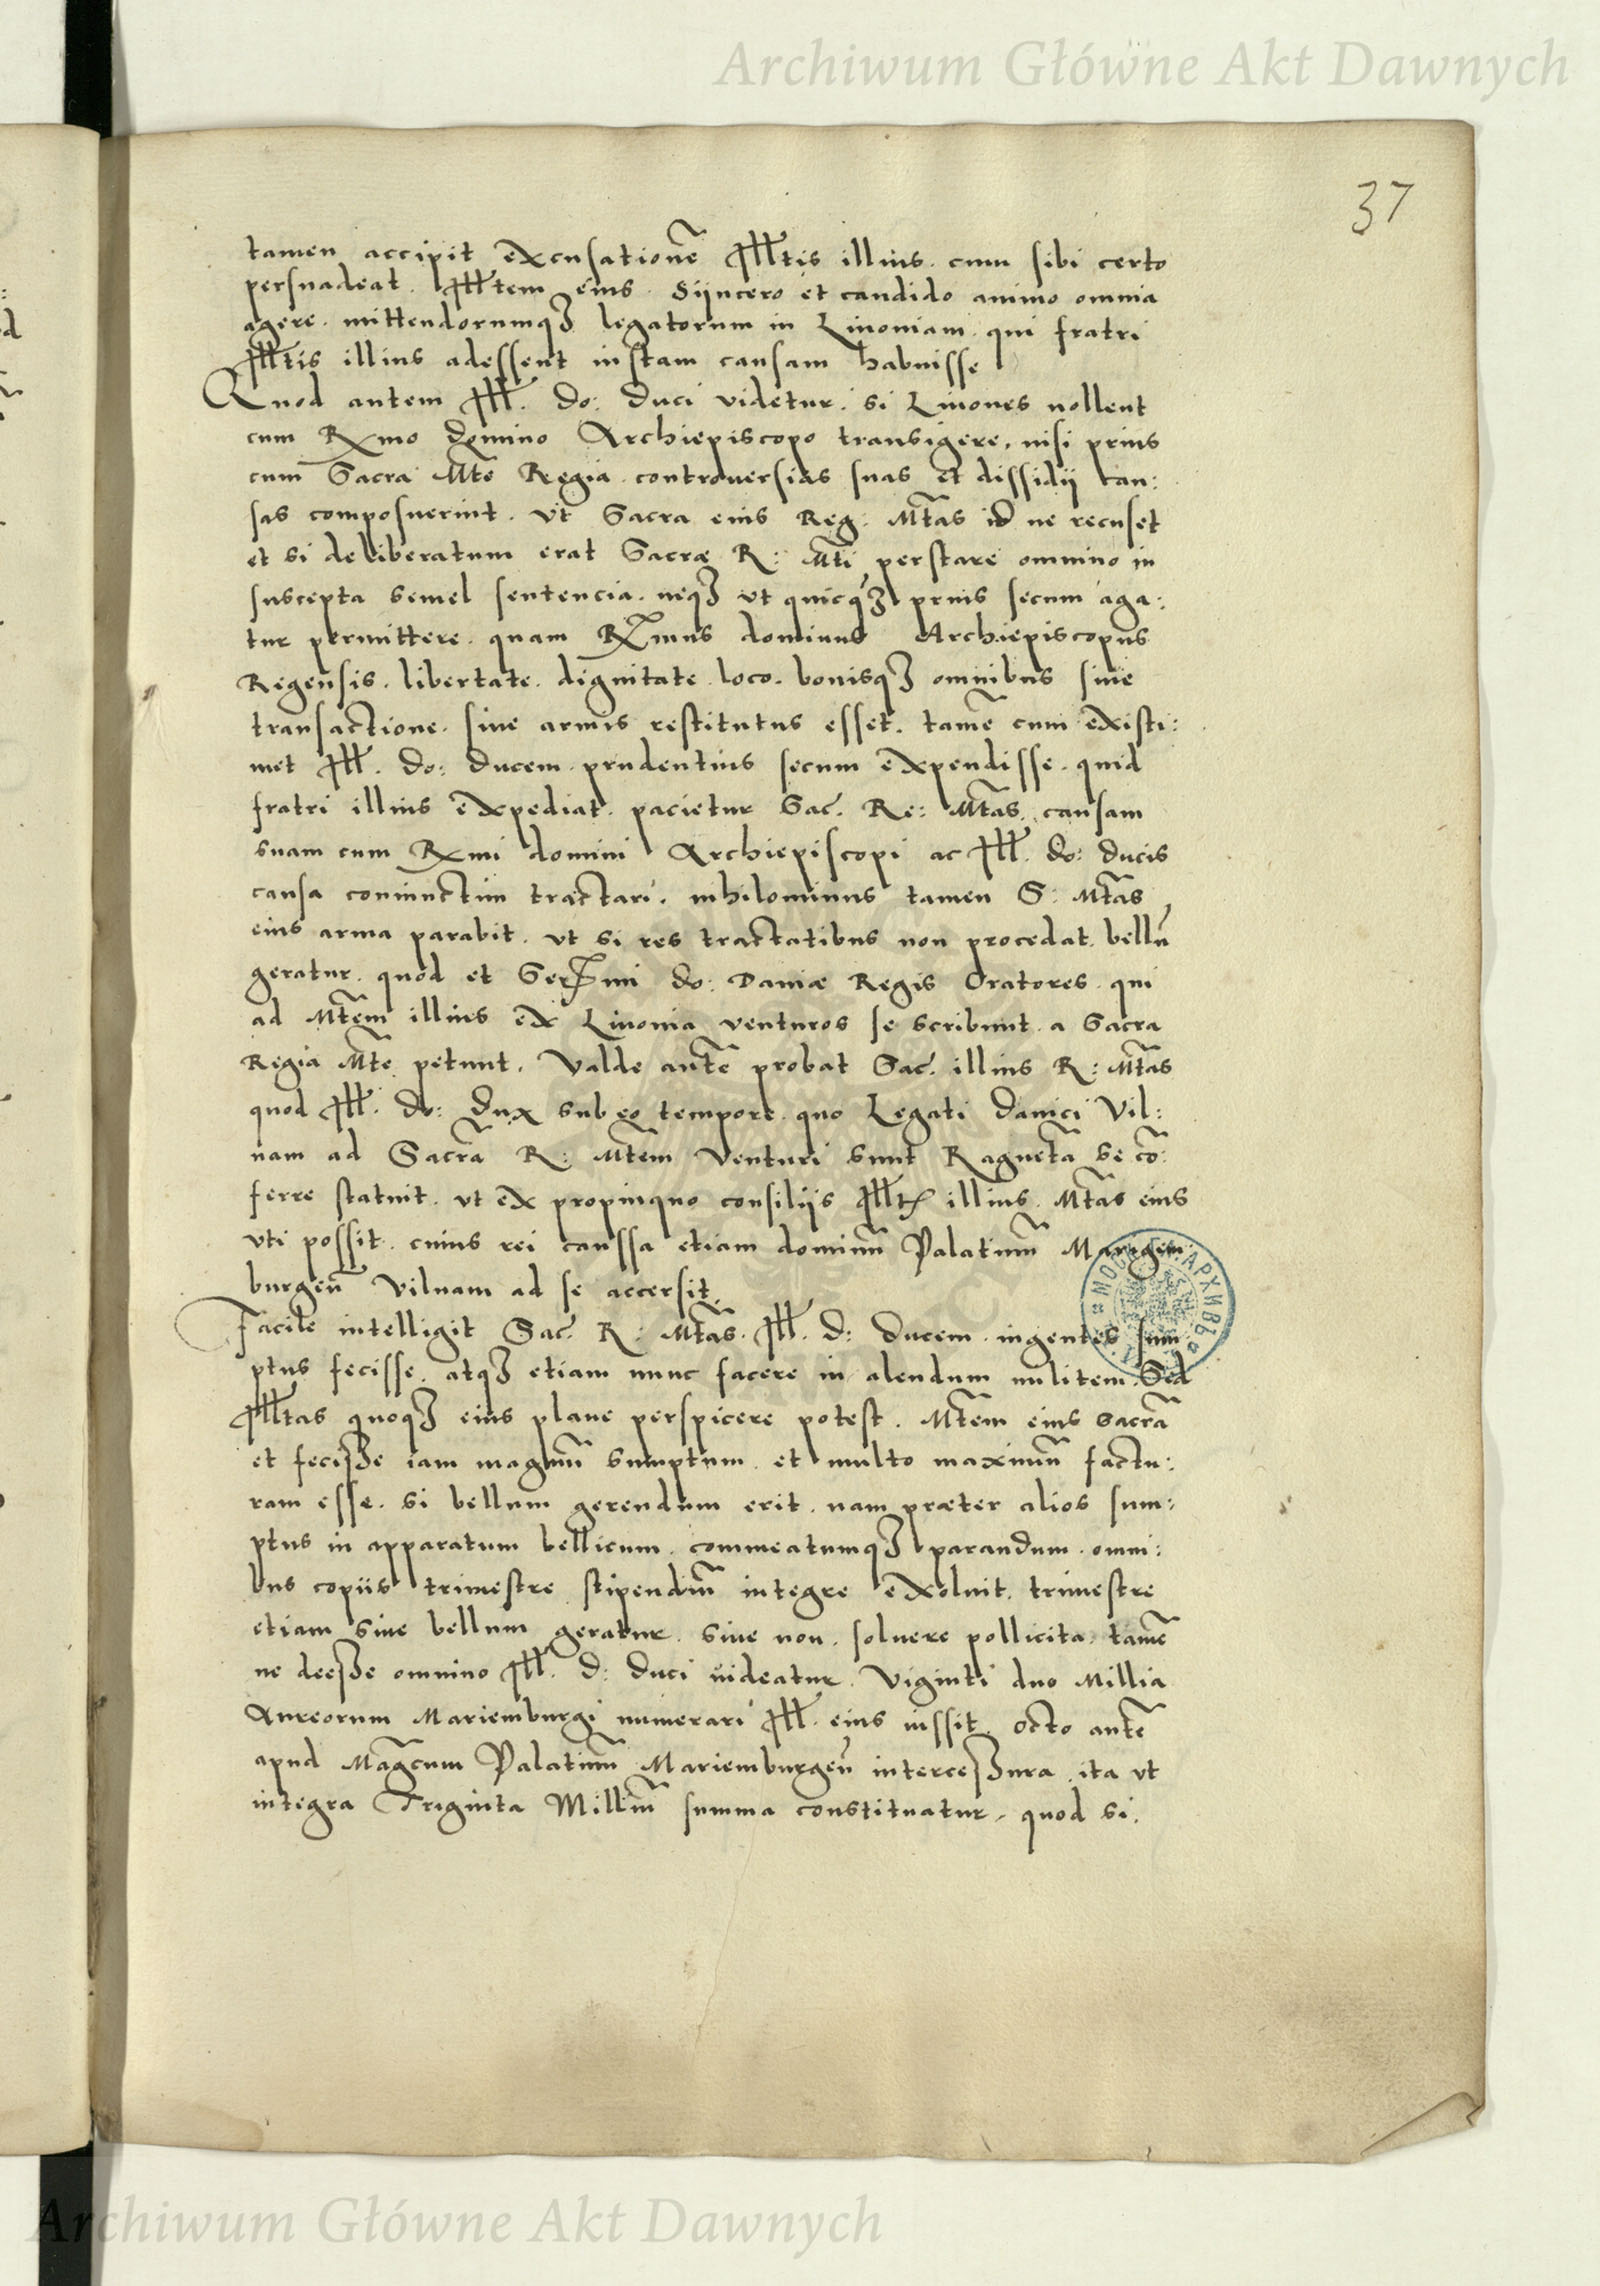 Archiwum Główne Akt Dawnych
37
tamen accipit excusationẽ Illtis illius. cum sibi certo
persuadeat. Illtem eius. Sijncero et candido animo omnia
agere. mittendorumq₃ legatorum in Liuoniam. qui fratri
Illtis illius adessent iustam causam habuisse
Quod autem Ill. do: duci videtur. si Liuones nollent
cum Rxmo domino Archiepiscopo transigere, nisi prius
cum Sacra Mte Regia. controuersias suas et dissidij cau:
sas composuerint. vt Sacra eius Reg: Mtas id ne recuset
et si deliberatum erat Sacræ R: Mti perstare omnino in
suscepta semel sentencia. neq₃ vt quicq̃₃ prius secum aga:
tur permittere. quam Rxmus dominus Archiepiscopus
Regensis. libertate. dignitate. loco. bonisq₃ omnibus siue
transactione. siue armis restitutus esset. tamẽ cum existi:
met Ill. do: ducem. prudentius secum expendisse. quid
fratri illius expediat. pacietur Sac. Re: Mtas. causam
suam cum Rxmi domini Archiepiscopi ac Ill. do: ducis
causa coniunctim tractari. nihilominus tamen S: Mtas
eius arma parabit. vt si res tractatibus non procedat. bellũ
geratur. quod et Serxmi do: Daniæ Regis Oratores. qui
ad Mtem illius ex Liuonia venturos se scribunt. a Sacra
Regia Mte petunt. Valde autẽ probat Sac. illius R: Mtas
quod Ill. do: dux sub eo tempore. quo Legati danici Vil:
nam ad Sacrã R: Mtem venturi sunt Ragnetã se cõ:
ferre statuit. vt ex propinquo consilijs Illtis illius. Mtas eius
vti possit. cuius rei caussa etiam dominũ Palatinũ Mariẽm:
burgeñ Vilnam ad se accersit.
Facile intelligit Sac. R: Mtas. Ill. d: ducem. ingentes sum:
ptus fecisse. atq₃ etiam nunc facere in alendum militem. Sed
Illtas quoq₃ eius plane perspicere potest. Mtem eius Sacrã
et feciße iam magnũ sumptum. et multo maximũ factu:
ram esse. si bellum gerendum erit. nam præter alios sum:
ptus in apparatum bellicum. commeatumq₃ parandum. omni:
bus copiis trimestre stipendiũ integre exoluit. trimestre
etiam siue bellum geratur. siue non. soluere pollicita. tamẽ
ne deeße omnino Ill. d: duci uideatur. Viginti duo Millia
Aureorum Mariemburgi numerari Ill. eius iussit. octo autẽ
apud Magcum Palatinũ Mariemburgeñ interceßura. ita vt
integra Triginta Milliũ summa constituatur. quod si.
Archiwum Główne Akt Dawnych